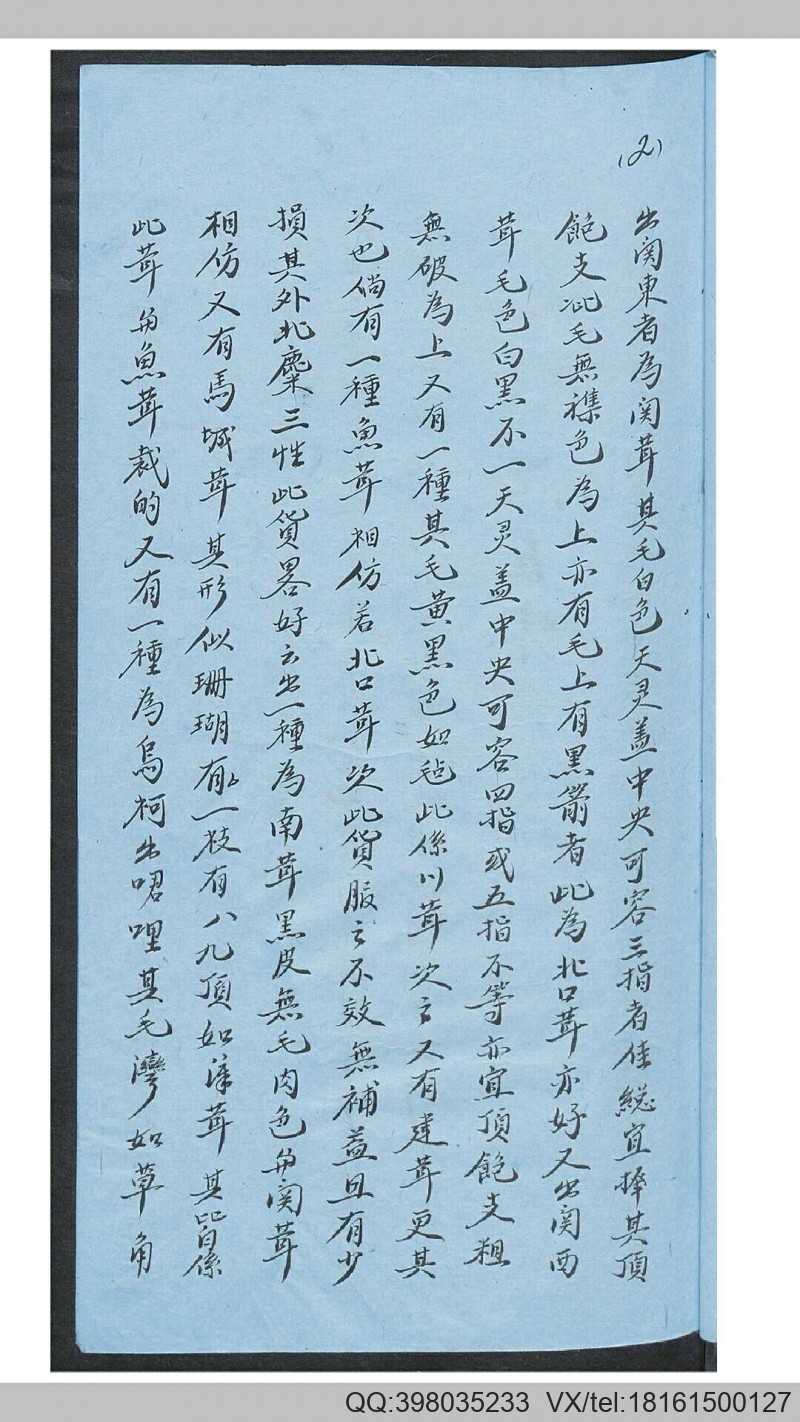 (2)
出関東者為関茸其毛白色天灵盖中央可容三指者佳総宜擇其頂
飽支沘毛無襍色為上亦有毛上有黑箭者此為北口茸亦好又出関西
茸毛色白黑不一天灵盖中央可容四指或五指不等亦宜頂飽支粗
無破為上又有一種其毛黄黑色如毡此係川茸次之又有建茸更其
次也倘有一種魚茸相仿若北口茸次此貨服之不效無補益且有少
損其外北麋三性此貨畧好云出一種為南茸黑皮無毛肉色与関茸
相仿又有馬城茸其形似珊瑚有一枝有八九頂如茸其皆係
此茸与魚茸裁的又有一種為烏柯出哾哩其毛灣如草角
QQ:398035233 VX/tel:18161500127